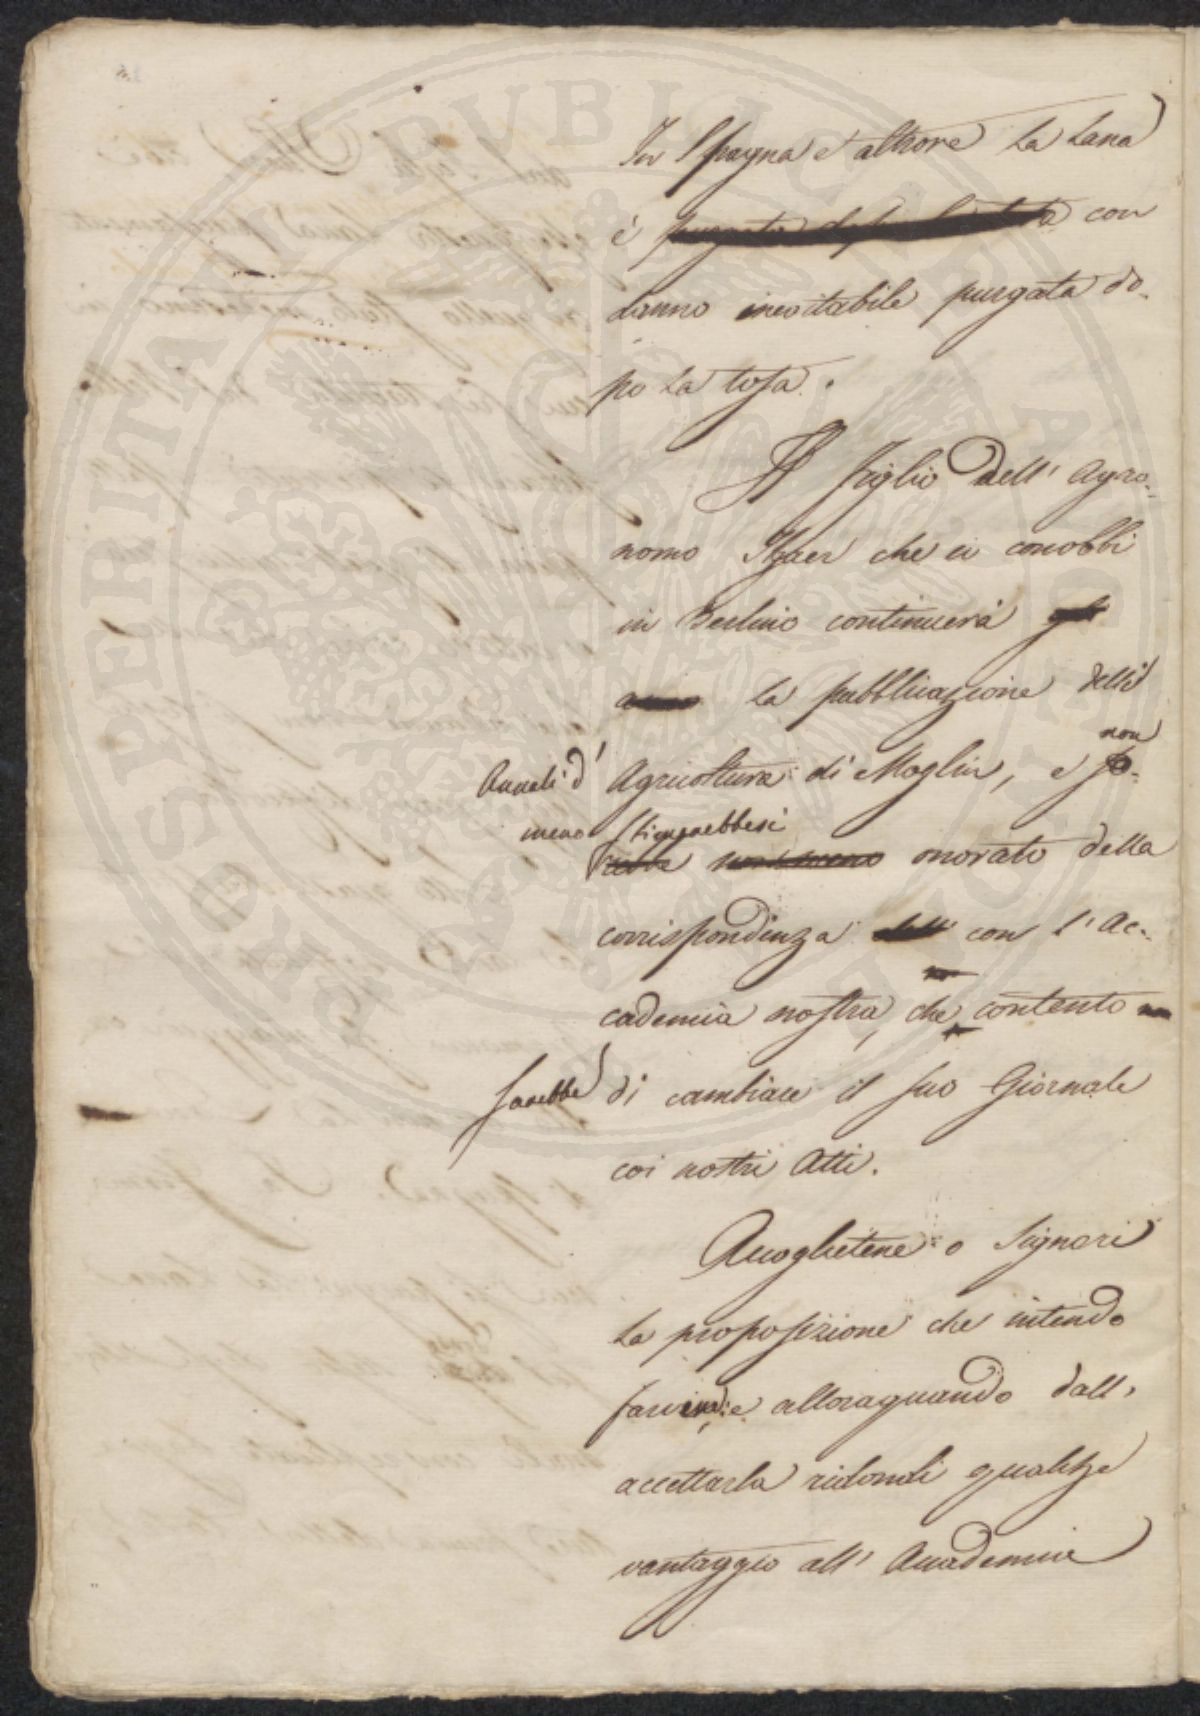 In Spagna e altrove la lana
è purgata dopo la tosa con
danno inevitabile purgata do-
po la tosa.
Il figlio dell' Agro-
nomo Thaer che ei conobbi
in Berlino continuerà gli
la pubblicazione delli
Annali d' Agricoltura di Moglin, e non sa-
meno stimerebbesi
rebbe non meno onorato della
corrispondenza dell' con l' Ac-
cademia nostra, che contento non
sarebbe di cambiare il suo Giornale
coi nostri Atti.
Accoglietene o Signori
la proposizione che intendo
farvene alloraquando dall'
accettarla ridondi qualche
vantaggio all' Accademia
PROSPERITATI PUBLICAE AUGENDAE